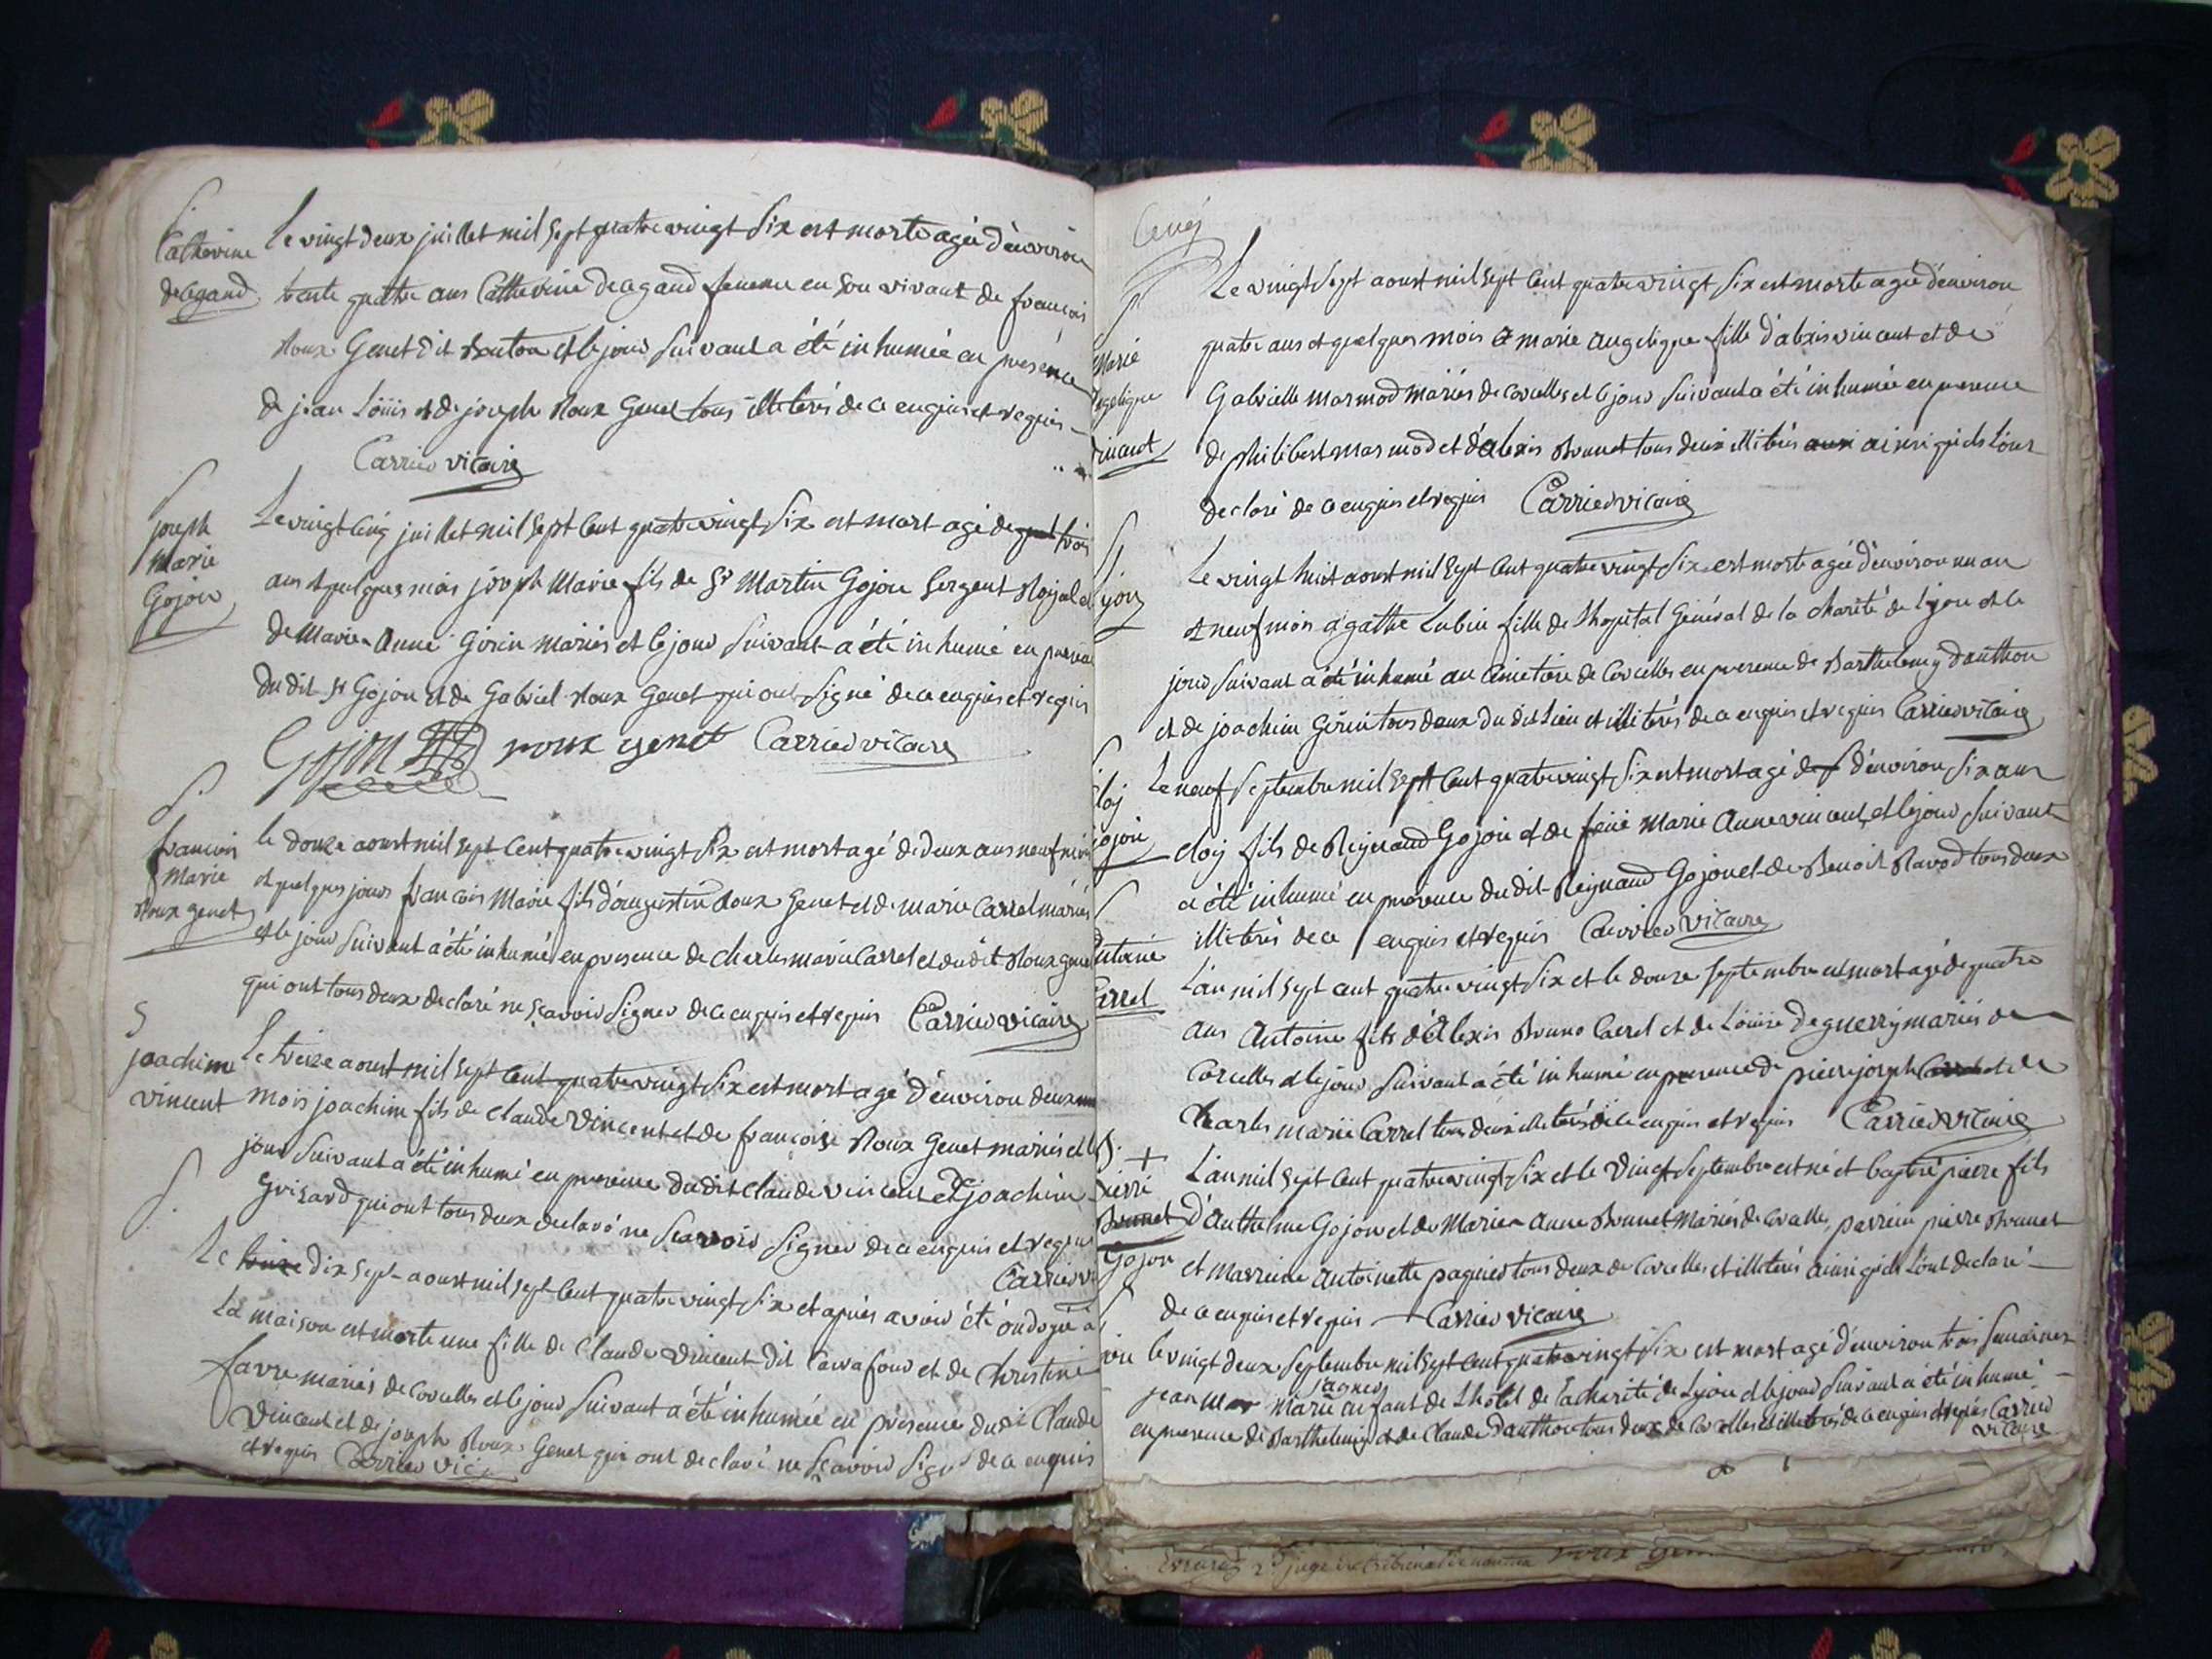 S.
Catherine
deagand
Le vingt deux juillet mil sept quatre vingt six est morte agée d'environ
trente quatre ans Catherine deagand femme en son vivant de francois
Roux Genet dit et le jour suivant a été inhumée en presence
de jean Loüis et de joseph Roux Genet tous illiterés de ce enquis et requis
Carrier vicaire
S.
joseph
Marie
Gojon
Le vingt cinq juillet mil sept cent quatre vingt six est mort agé de quat trois
ans et quelques mois joseph Marie fils de Sr Martin Gojon Sergent Royal et
de Marie Anne Girin mariés et le jour suivant a été inhumé en presence
du dit Sr Gojon et de Gabriel Roux Genet qui ont signé de ce enquis et requis
Gojon roux genet Carrier vicaire
S.
francois
Marie
Roux genet
le douze aoust mil sept cent quatre vingt six est mort agé de deux ans neuf mois
et quelques jours francois Marie fils d'augustin Roux Genet et de marie Carrel mariés
et le jour suivant a été inhumé en presence de charles marie Carrel et du dit Roux genet
qui ont tous deux declaré ne scavoir signer de ce enquis et requis Carrier vicaire
S
joachim
vincent
Le treize aoust mil sept cent quatre vingt six est mort agé d'environ deux
mois joachim fils de Claude Vincent et de francoise Roux Genet mariés et le
jour suivant a été inhumé en presence du dit Claude vincent et joachim
Grisard qui ont tous deux declaré ne scavoir signer de ce enquis et requis
Carrier vi
S.
Le treize dix sept aoust mil sept cent quatre vingt six et après avoir été ondoyée à
la maison est morte une fille de Claude Vincent dit et de Christine
favre mariés de Corcelles et le jour suivant a été inhumée en presence du dit Claude
Vincent et de joseph Roux Genet qui ont declaré ne scavoir signer de ce enquis
et requis Carrier vic
Cenej
S
Marie
Angelique
vincent
Le vingt sept aoust mil sept cent quatre vingt six est morte agée d'environ
quatre ans et quelques mois marie angelique fille d'alexis vincent et de
Gabrielle marmod mariés de Corcelles et le jour suivant a été inhumée en presence
de philibert marmod et d'alexis Brunet tous deux illiterés aussi ainsi qu'ils l'ont
declaré de ce enquis et requis Carrier vicaire
S
Lyon
Le vingt huit aoust mil sept cent quatre vingt six est morte agée d'environ un an
et neuf mois agathe Lubin fille de l'hopital Général de la charité de lyon et le
jour suivant a été inhumé au cimetiere de Corcelles en presence de Barthelemy dauthon
et de joachim Girin tous deux du dit Lieu et illiterés de ce enquis et requis Carrier vicaire
S
Eloy
Gojon
Le neuf septembre mil sept cent quatre vingt six est mort agé de s d'environ six ans
eloy fils de Reynaud Gojon et de feüe Marie Anne vincent, et le jour suivant
a été inhumé en presence du dit Reynaud Gojon et de Benoit Ravod tous deux
illiterés de ce enquis et requis Carrier vicaire
S
Antoine
Carrel
L'an mil sept cent quatre vingt six et le douze septembre est mort agé de quatre
ans Antoine fils d'Alexis Bruno Carrel et de Loüise Deguerry mariés de
Corcelles et le jour suivant a été inhumé en presence de pierre joseph Carrel et de
Charles marie Carrel tous deux illiterés de ce enquis et requis Carrier vicaire
S. +
Pierre
Brunet
Gojon
L'an mil sept cent quatre vingt six et le vingt septembre est né et baptisé pierre fils
d'Anthelme Gojon et de Marie Anne Brunet mariés de Corcelles, parrein pierre Brunet
et marreine antoinette pagnier tous deux de Corcelles et illiterés ainsi qu'ils l'ont declaré
de ce enquis et requis Carrier vicaire
S
le vingt deux septembre mil sept cent quatre vingt six est mort agé d'environ trois semaines
jean Mar marie enfant de l'hôtel de la charité de Lyon et le jour suivant a été inhumé
en presence de Barthelemy et de Claude Dauthon tous deux de Corcelles et illiterés de ce enquis et requis Carrier
vicaire
juge roux gen